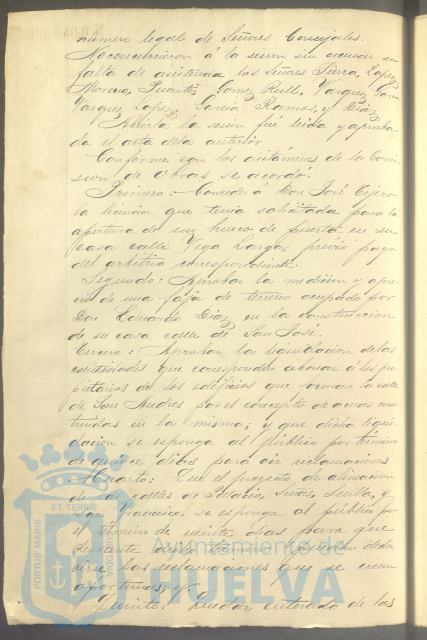 número legal de Señores Concejales.
No concurrieron á la sesion sin escusar su
falta de asistencia los Señores Sierra, Lopez
Moreno, Duarte, Gomez Rull, Vazquez
Vazquez Lopez, Garcia Ramos, y Diaz.
Abierta la sesion fué leida y aproba-
da el acta de la anterior
Conforme con los dictámenes de la Comi-
sion de obras se acordó:
Primero:- Conceder á Don José
la licencia que tenia solicitada para la
apertura de un hueco de puerta en su
casa calle Vega Larga, prévio pago
del arbitrio correspondiente.
Segundo: Aprobar la medicion y apre-
cio de una faja de terreno ocupado por
Don Eduardo Diaz en la construccion
de su casa calle de San José.
Tercero:- Aprobar la liquidacion de las
cantidades que corresponden abonar á los pro-
pietarios de los edificios que forman la calle
de San Andres por el concepto de aceras cons-
truidas en la misma; y que dicha liqui-
dacion se esponga al público por término
de quince dias para oir reclamaciones
Cuarto: Que el proyecto de alineacion
de las calles de Palacio, Sevilla, y
San Francisco, se esponga al público por
el término de veinte dias para que
durante dicho plazo puedan dedu-
cirse las reclamaciones que se crean
oportunas; y
Quinto: Quedar enterado de los
PORTUS MARIS
ET TERRÆ
CUSTODIA
Ayuntamiento de
HUELVA